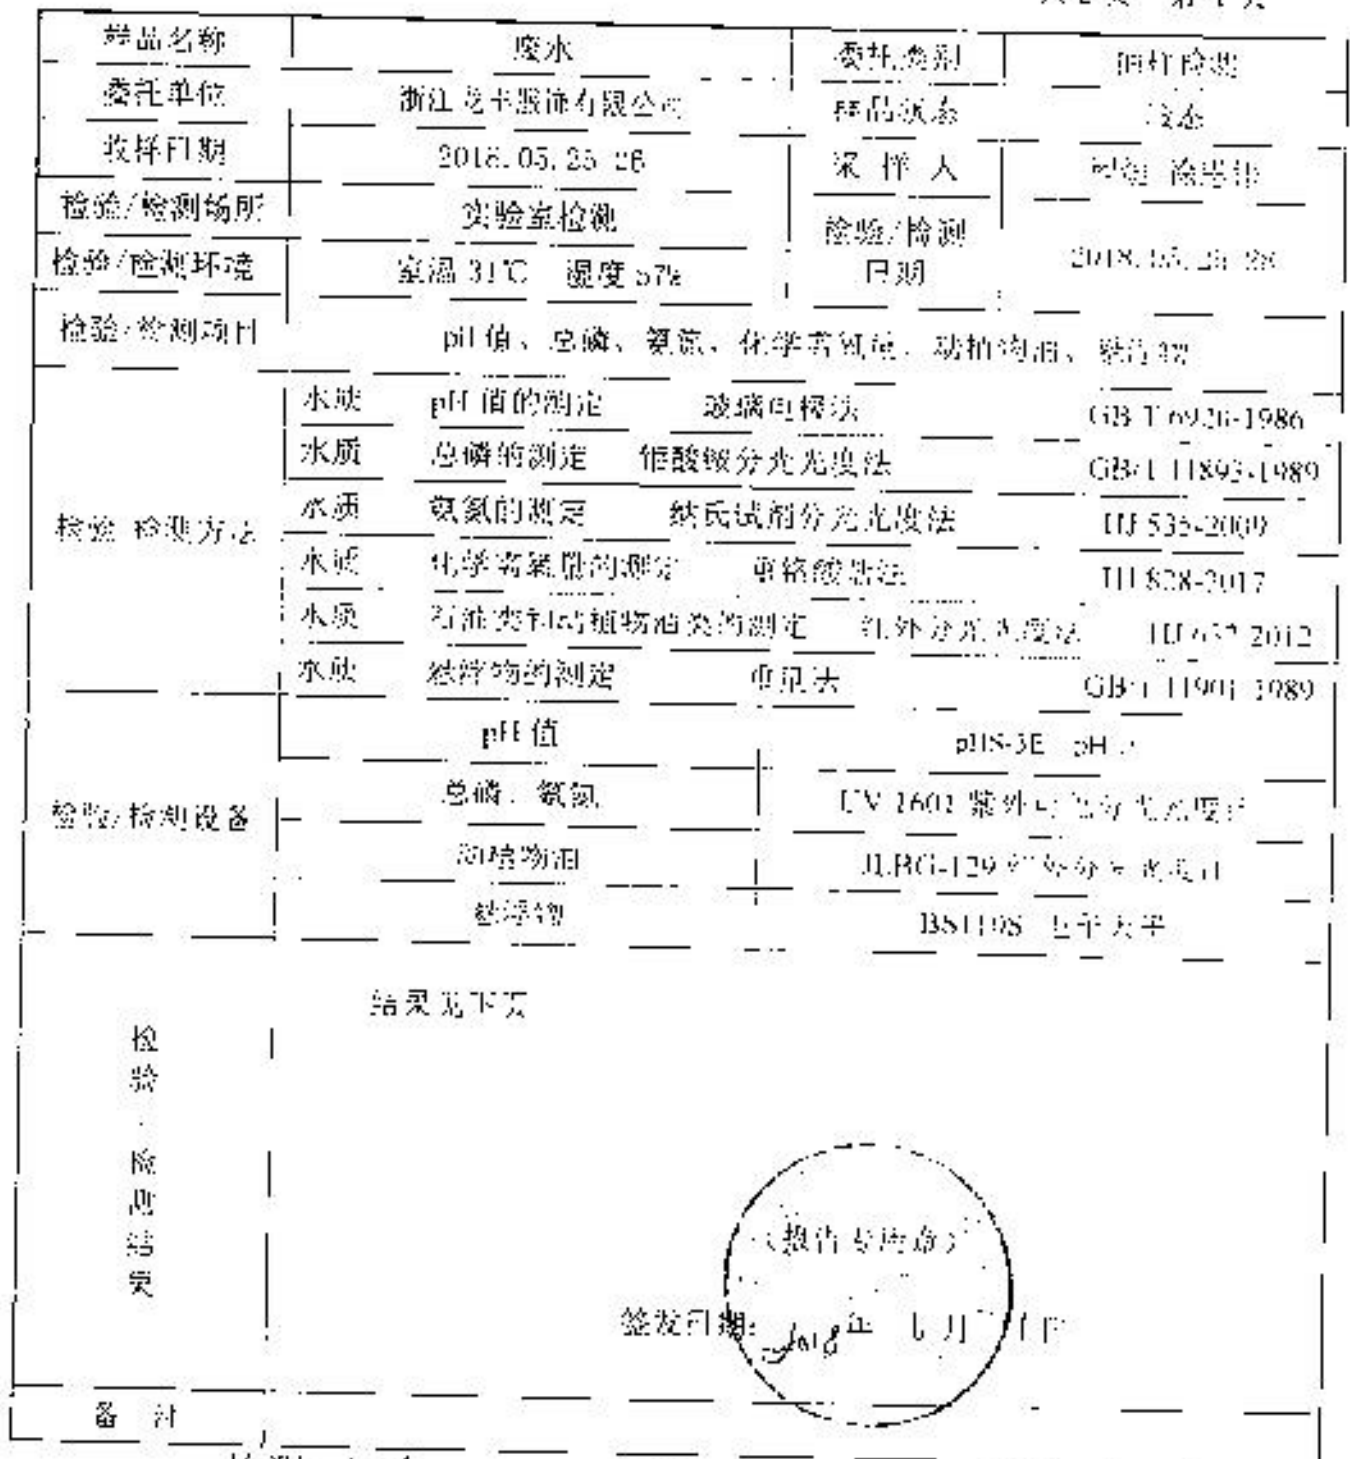 样品名称 废水 委托类别
委托单位 浙江 服饰有限公司 样品状态 液态
收样日期 2018.05.25-26 采 样 人
检验/检测场所 实验室检测 检验/检测日期 2018.05.25-28
检验/检测环境 室温 31℃ 湿度 57%
检验/检测项目 pH 值、总磷、氨氮、化学需氧量、动植物油、悬浮物
检验/检测方法
水质 pH 值的测定 玻璃电极法 GB/T 6920-1986
水质 总磷的测定 钼酸铵分光光度法 GB/T 11893-1989
水质 氨氮的测定 纳氏试剂分光光度法 HJ 535-2009
水质 化学需氧量的测定 重铬酸盐法 HJ 828-2017
水质 石油类和动植物油类的测定 红外分光光度法 HJ 637-2012
水质 悬浮物的测定 重量法 GB/T 11901-1989
检验/检测设备
pH 值 pHS-3E pH 计
总磷、氨氮 UV-1601 紫外可见分光光度计
动植物油 JLBG-129 红外分光光度计
悬浮物 BS110S 电子天平
检验/检测结果
结果见下页
（报告专用章）
签发日期: 2018 年 月 日
备 注